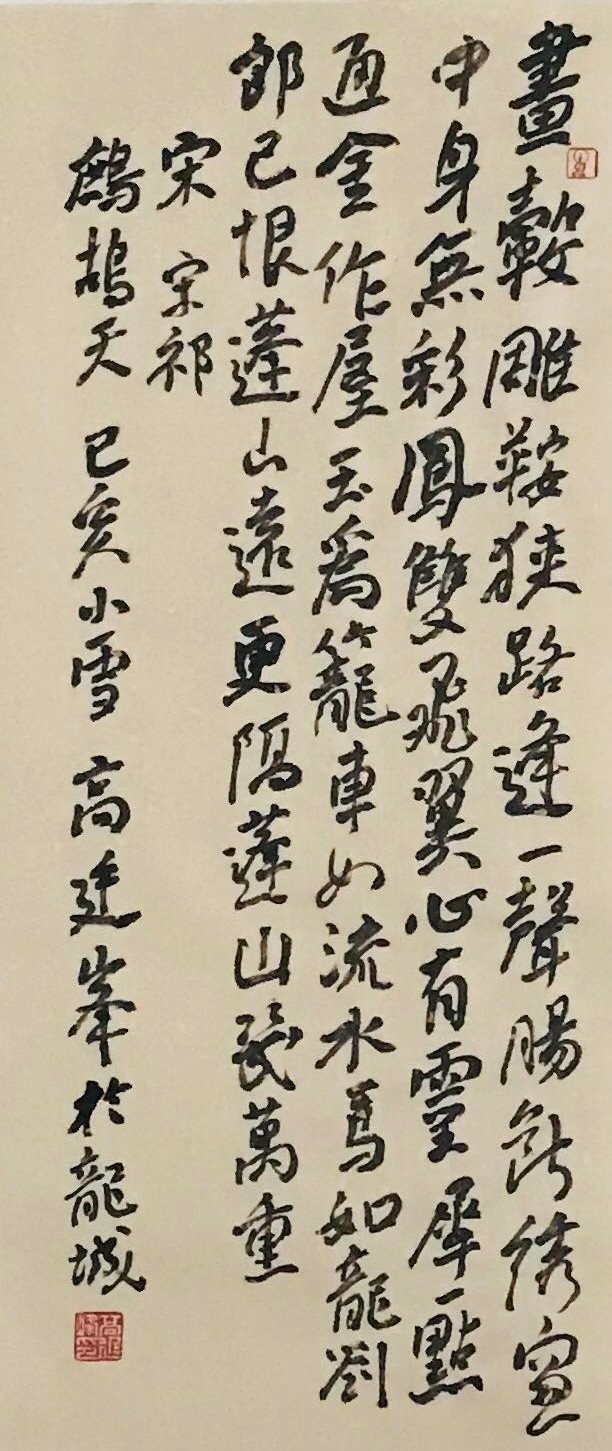 畫轂雕鞍狹路逢一聲腸斷綉窻
中身無彩鳳雙飛翼心有靈犀一點
通金作屋玉爲籠車如流水馬如龍劉
郎已恨蓬山遠更隔蓬山幾萬重
宋 宋祁
鷓鴣天 己亥小雪 高延峯於龍城